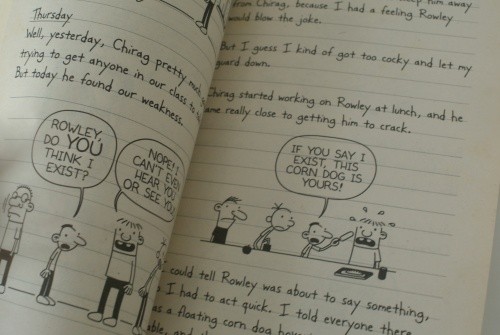 Thursday
Well, yesterday, Chirag pretty much
trying to get anyone in our class to
But today he found our weakness.
ROWLEY,
DO YOU
THINK I
EXIST?
NOPE! I
CAN'T EVEN
HEAR YOU
OR SEE YOU
him away
from Chirag, because I had a feeling Rowley
would blow the joke.
But I guess I kind of got too cocky and let my
guard down.
Chirag started working on Rowley at lunch, and he
came really close to getting him to crack.
IF YOU SAY I
EXIST, THIS
CORN DOG IS
YOURS!
I could tell Rowley was about to say something,
so I had to act quick. I told everyone there
was a floating corn dog